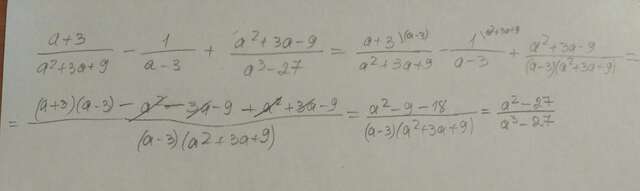 (a+3)/(a²+3a+9) − 1/(a−3) + (a²+3a−9)/(a³−27) = (a+3\(a−3))/(a²+3a+9) − (1\a²+3a+9)/(a−3) + (a²+3a−9)/((a−3)(a²+3a−9)) =
= ((a+3)(a−3) − a² − 3a − 9 + a² + 3a − 9)/((a−3)(a²+3a+9)) = (a²−9−18)/((a−3)(a²+3a+9)) = (a²−27)/(a³−27)